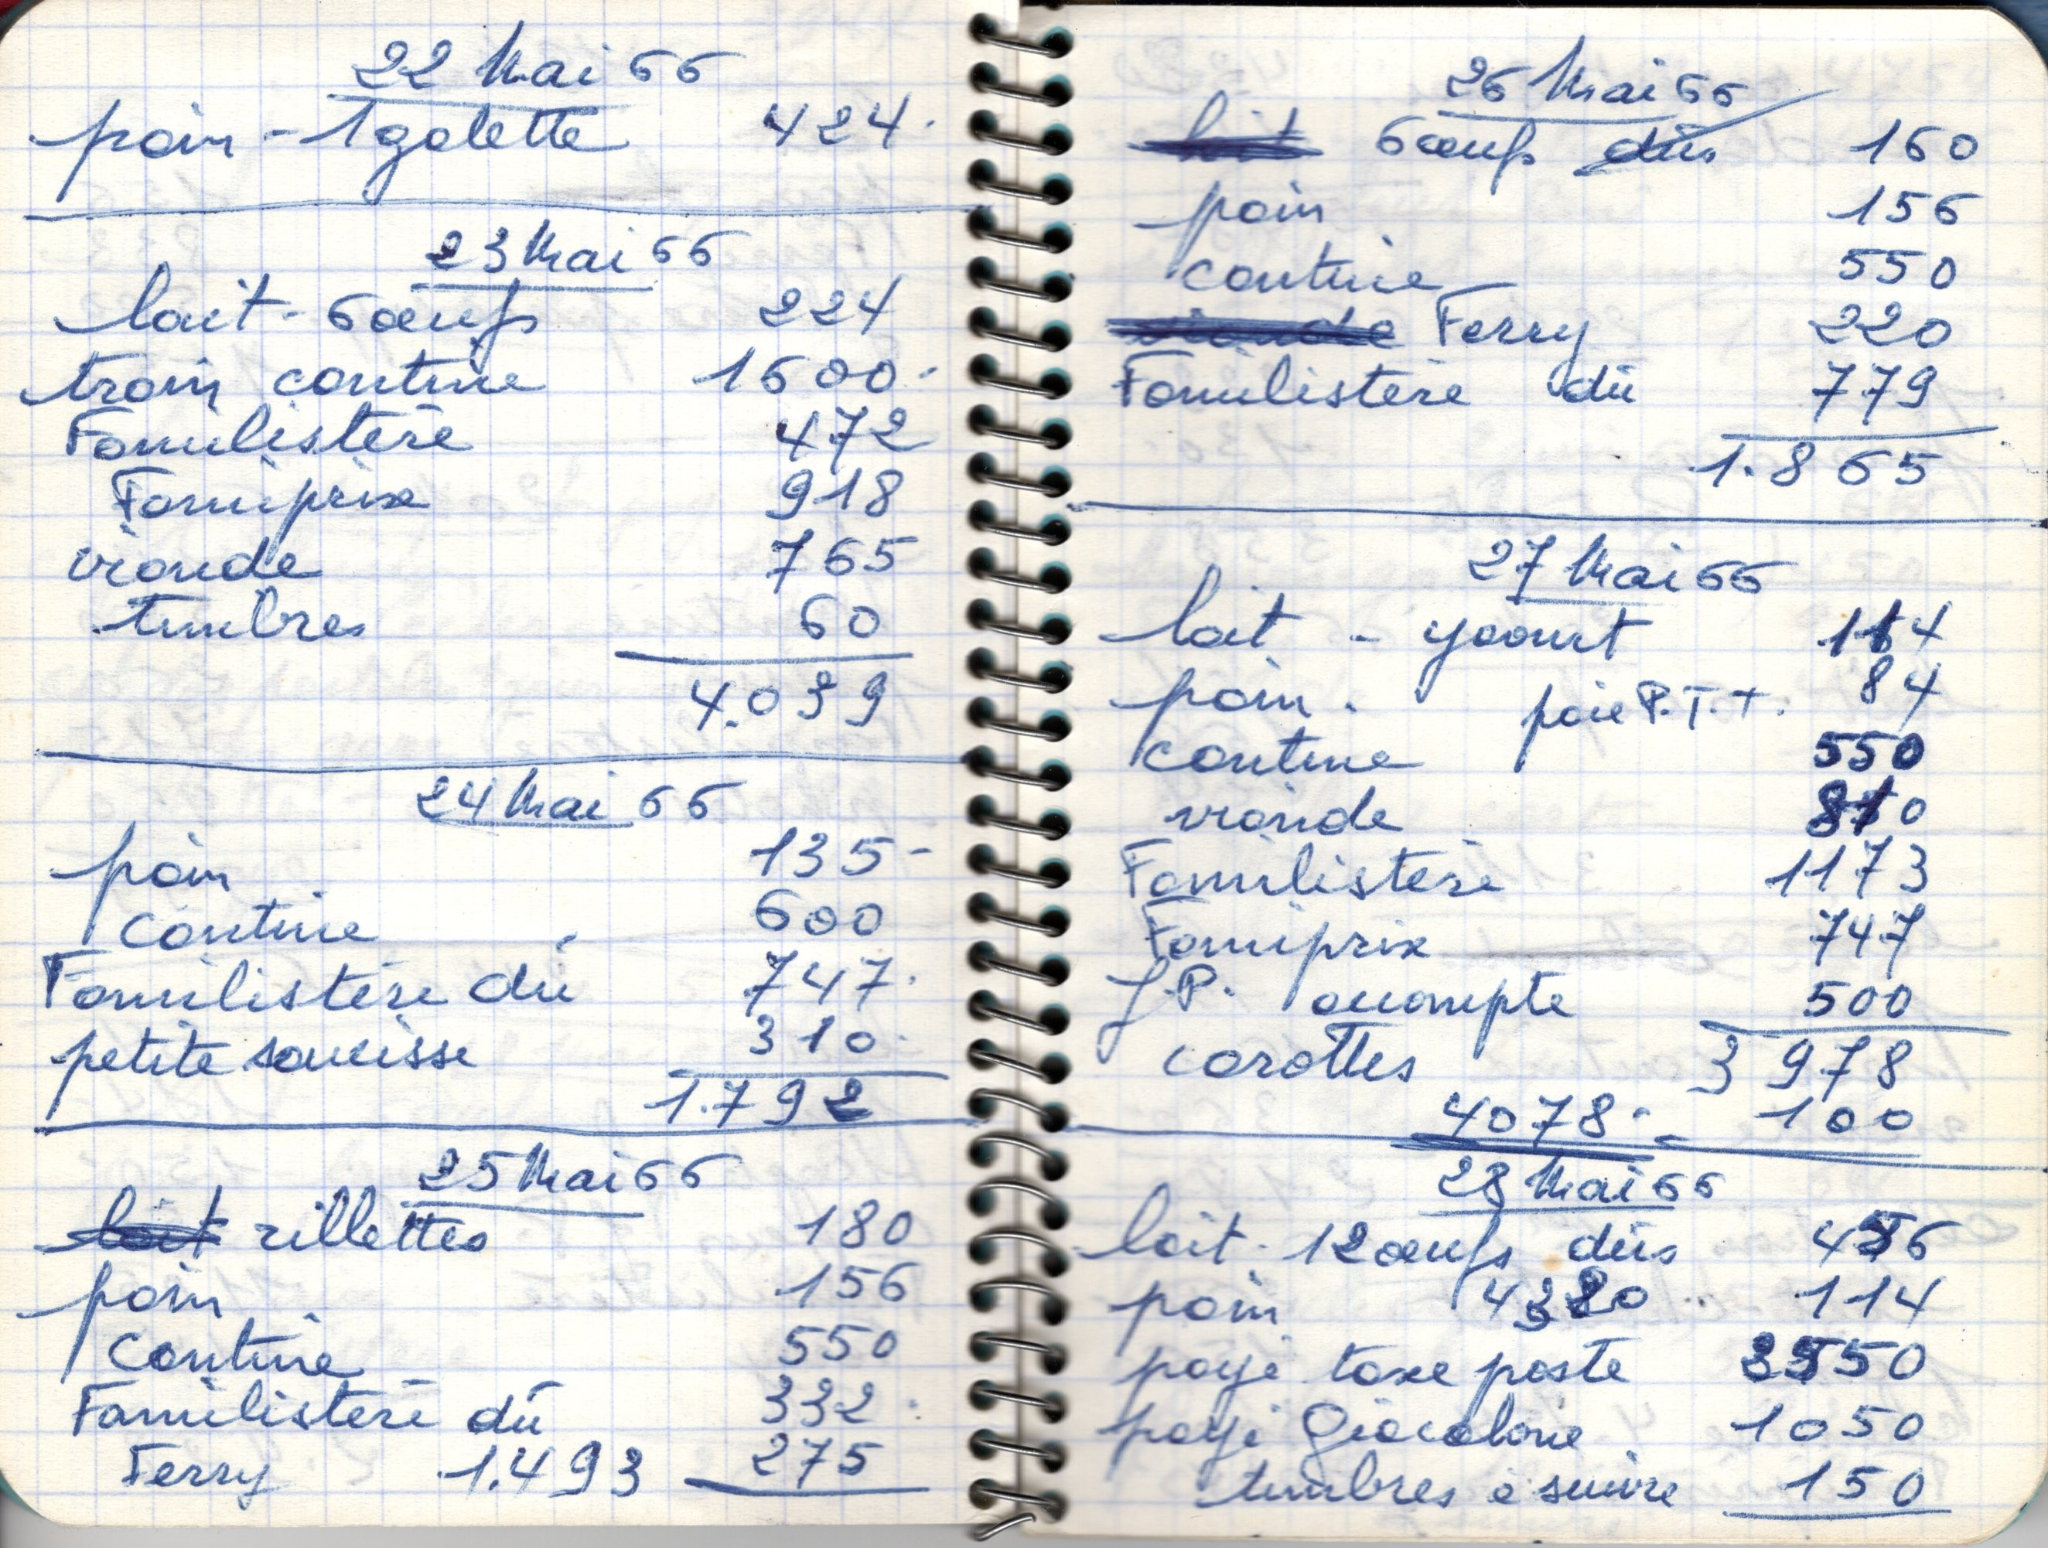 22 Mai 66
pain - 1 galette 424.
23 Mai 66
lait - 6 œufs 224
train cantine 1600.
Familistère 472
Familiprix 918
viande 765
timbres 60
4.039
24 Mai 66
pain 135 -
cantine 600
Familistère dû 747.
petite saucisse 310.
1.792
25 Mai 66
lait rillettes 180
pain 156
cantine 550
Familistère dû 332.
Ferry 1.493 275
26 Mai 66
lait 6 œufs dûs 160
pain 156
cantine 550
viande Ferry 220
Familistère dû 779
1.865
27 Mai 66
lait - yaourt 114
pain. paie P.T.T. 84
cantine 550
viande 810
Familistère 1173
Famiprix 747
J.P. accompte 500
carottes 3 978
4078.- 100
28 Mai 66
lait - 12 œufs dûs 456
pain 114
payé taxe poste 50
payé Giacalone 1050
timbres à suivre 150